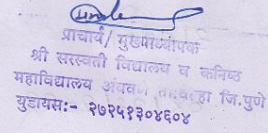 प्राचार्य/मुख्याध्यापक
श्री सरस्वती विद्यालय व कनिष्ठ
महाविद्यालय जि.पुणे
युडायस:- २७२५१३०४६०४